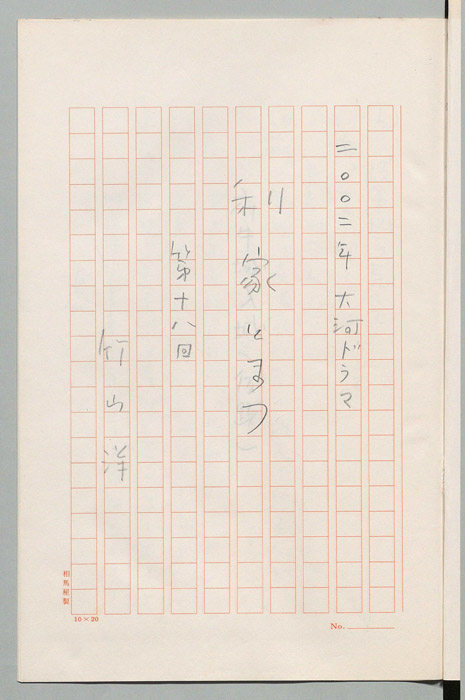 二〇〇二年 大河ドラマ
利家とまつ
第十八回
竹山洋
相馬屋製
10×20
No.